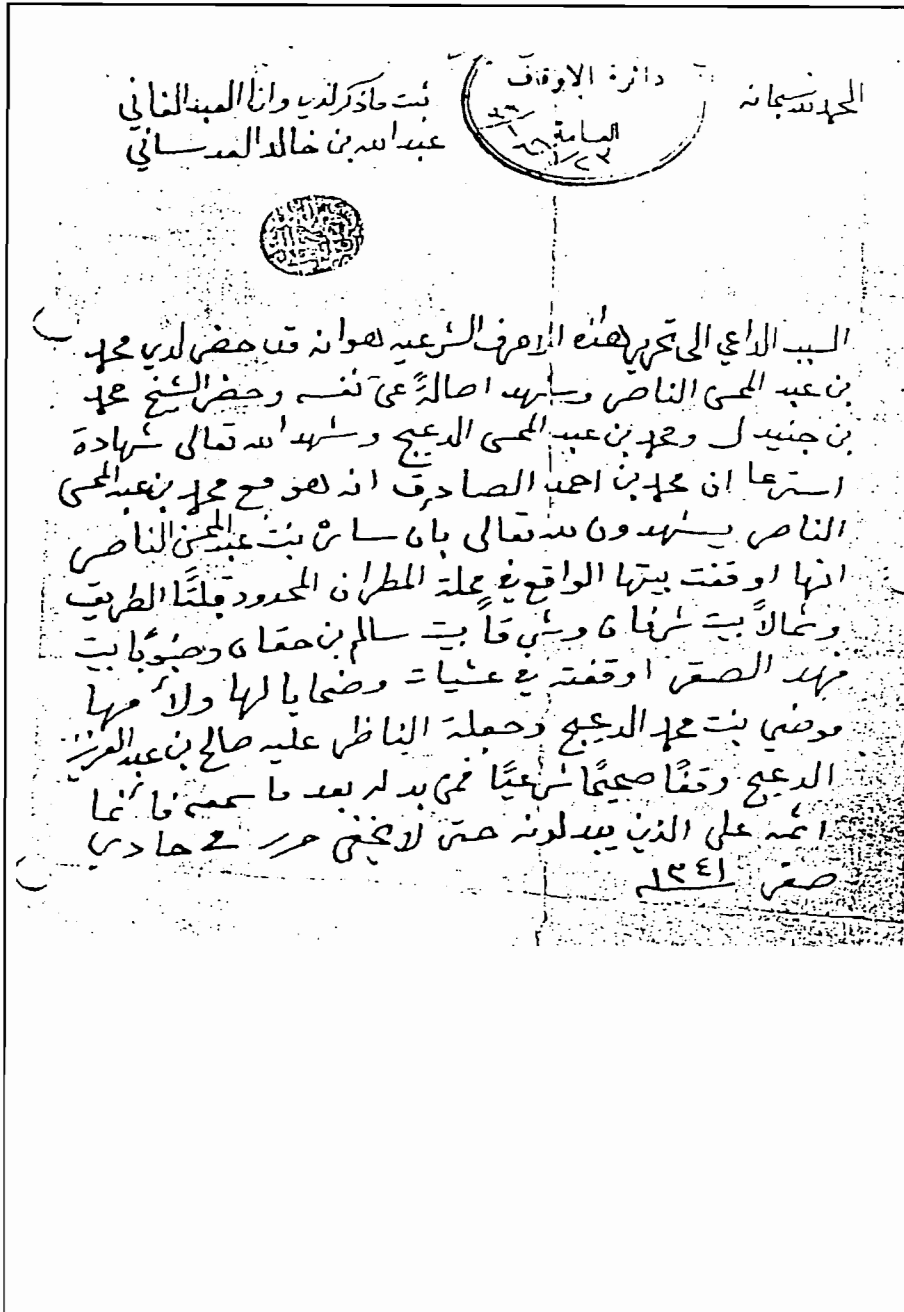 الحمد لله سبحانه
دائرة الاوقاف
العامة
ثبت ما ذكر لدي وانا العبد الفاني
عبد الله بن خالد العدساني
السبب الداعي الى تحرير هذه الاحرف الشرعيه هو انه قد حضر لدي محمد
بن عبد المحسن الناصر وشهد اصالةً عن نفسه وحضر الشيخ محمد
بن جنيدل ومحمد بن عبد المحسن الدعيج وشهد الله تعالى شهادة
استرعا ان محمد بن احمد الصادرق انه هو مع محمد بن عبد المحسن
الناصر يشهدون لله تعالى بان سارة بنت عبد المحسن الناصر
انها اوقفت بيتها الواقع في محلة المطران المحدود قبلتًا الطريق
وشمالاً بيت شرفان وشرقاً بيت سالم بن حقان وجنوبًا بيت
فهد الصقر اوقفته في عشيات وضحايا لها ولأمها
موضي بنت محمد الدعيج وجعلة الناظر عليه صالح بن عبد العزيز
الدعيج وقفًا صحيحًا شرعيًا فمن بدله بعد ما سمعه فانما
اثمه على الذين يبدلونه حتى لا يخفى حرر في حادي
صفر ١٣٤١